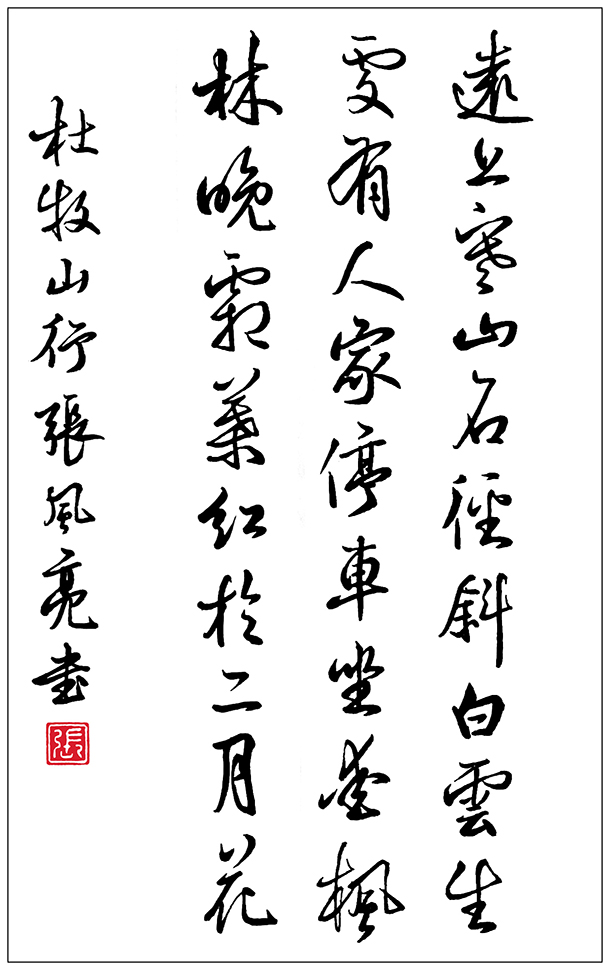 遠上寒山石徑斜白雲生
處有人家停車坐愛楓
林晚霜葉紅於二月花
杜牧山行張風亮書
張